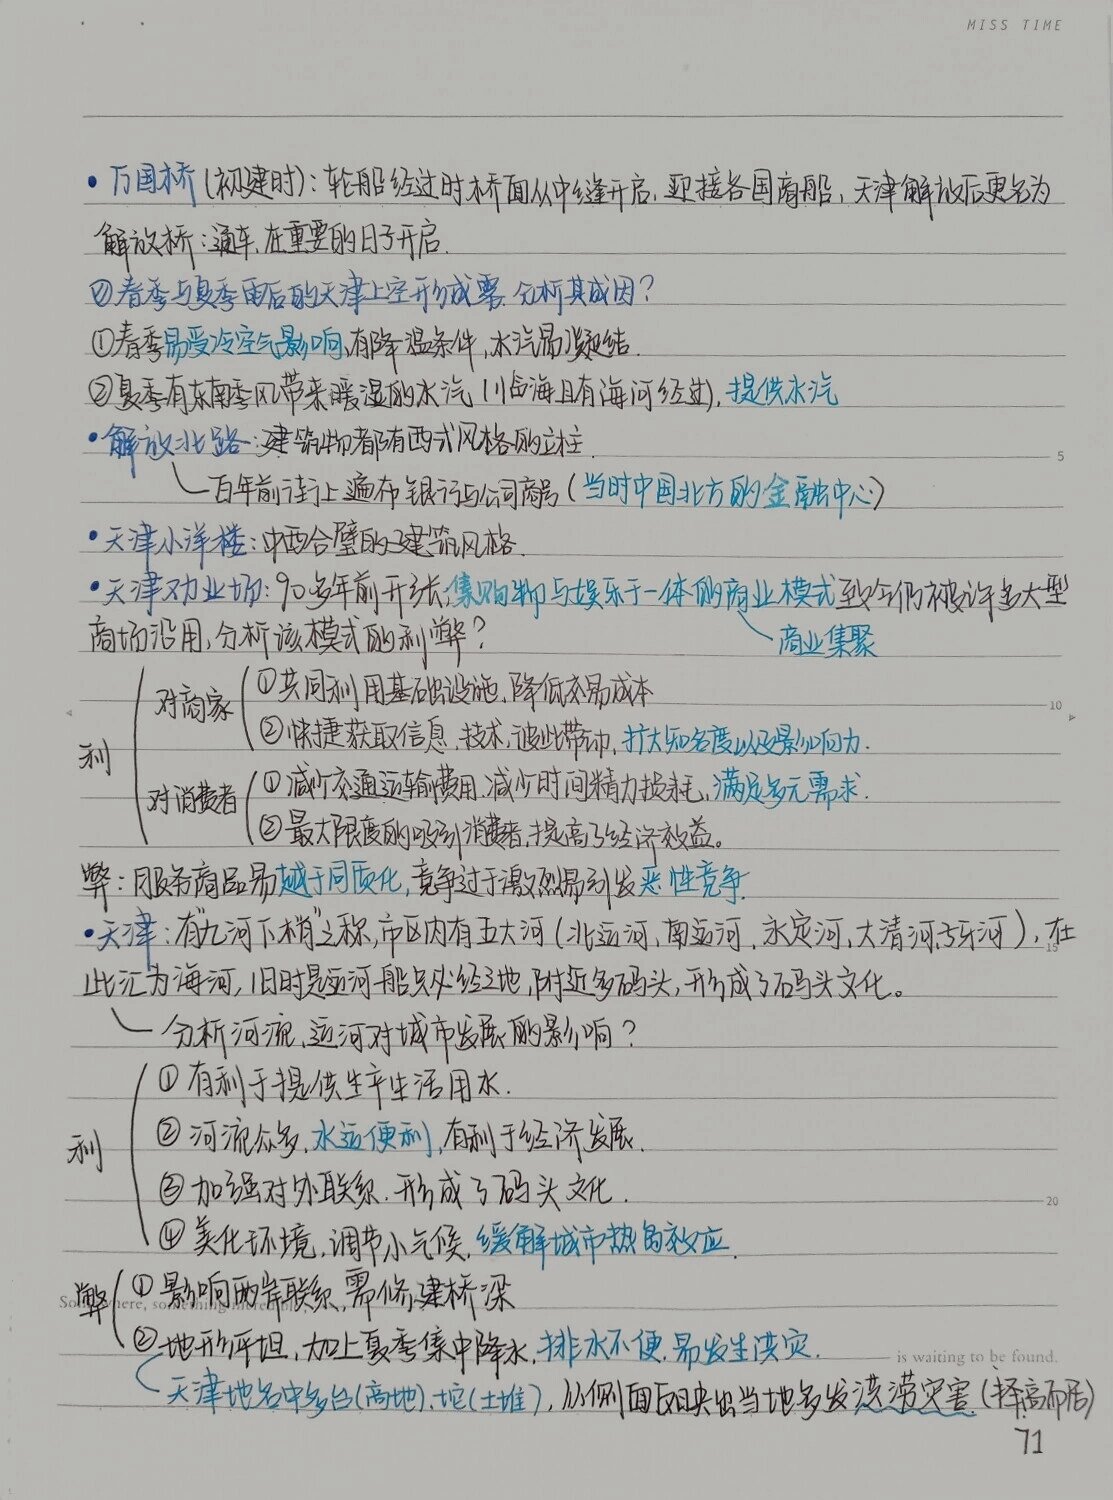 MISS TIME
• 万国桥(初建时):轮船经过时桥面从中缝开启,迎接各国商船,天津解放后更名为
解放桥:通车,在重要的日子开启.
②春季与夏季雨后的天津上空形成雾.分析其成因?
①春季易受冷空气影响,有降温条件,水汽易凝结.
②夏季有东南季风带来暖湿的水汽(临海且有海河经过),提供水汽
• 解放北路:建筑物都有西式风格的立柱.
百年前街上遍布银行与公司商号(当时中国北方的金融中心)
• 天津小洋楼:中西合璧的建筑风格.
• 天津劝业场:90多年前开张,集购物与娱乐于一体的商业模式至今仍被许多大型
商场沿用,分析该模式的利弊?
商业集聚
利
对商家
①共同利用基础设施,降低交易成本
②快捷获取信息,技术,彼此带动,扩大知名度以及影响力.
对消费者
①减少交通运输费用.减少时间精力损耗,满足多元需求.
②最大限度的吸引消费者,提高了经济效益。
弊:服务商品易趋于同质化,竞争过于激烈易引发恶性竞争.
• 天津:有"九河下梢"之称,市区内有五大河(北运河,南运河,永定河,大清河,子牙河),在
此汇为海河,旧时是运河船只必经之地,附近多码头,形成了码头文化。
分析河流,运河对城市发展的影响?
利
①有利于提供生产生活用水.
②河流众多,水运便利,有利于经济发展.
③加强对外联系.形成了码头文化.
④美化环境,调节小气候,缓解城市热岛效应.
弊
①影响两岸联系,需修建桥梁
②地形平坦,加上夏季集中降水,排水不便,易发生洪灾.
is waiting to be found.
天津地名中多台(高地).坨(土堆),从侧面反映出当地多发洪涝灾害.(择高而居)
71
5
10
15
20